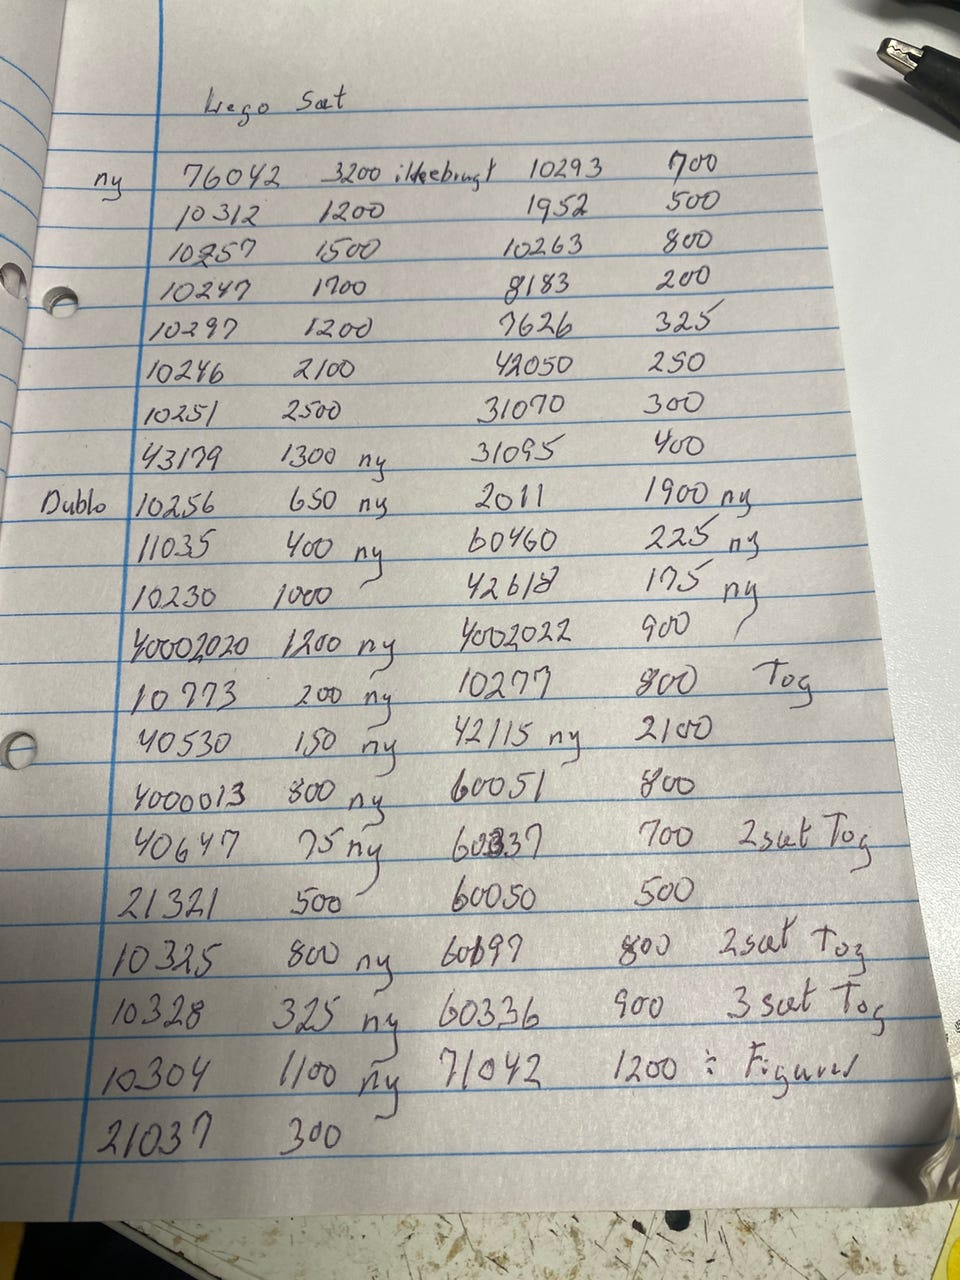 Lego Sæt
ny 76042 3200 ikkebrugt 10293 700
10312 1200 1952 500
10257 1500 10263 800
10247 1700 8183 200
10297 1200 7626 325
10246 2100 42050 250
10251 2500 31070 300
43179 1300 ny 31095 400
Dublo 10256 650 ny 2011 1900 ny
11035 400 ny 60460 225 ny
10230 1000 42618 175 ny
40002020 1200 ny 4002022 900
10773 200 ny 10277 800 Tog
40530 150 ny 42115 ny 2100
4000013 800 ny 60051 800
40647 75 ny 60337 700 2sæt Tog
21321 500 60050 500
10325 800 ny 60197 800 2sæt Tog
10328 325 ny 60336 900 3 sæt Tog
10304 1100 ny 71042 1200 ÷ Figurer
21037 300